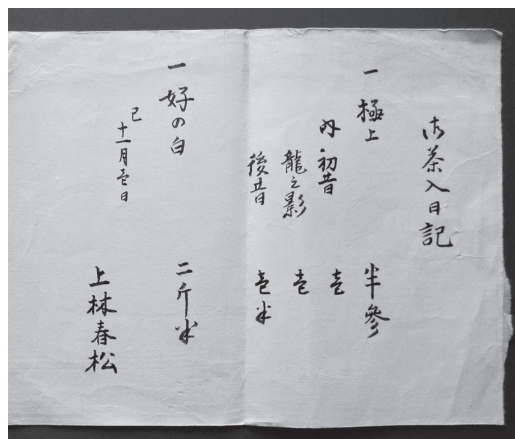 御茶入日記
一 極上 半 參
内 初昔 壱
龍之影 壱
後昔 壱半
一 好の白 二斤半
巳十一月壱日
上林春松